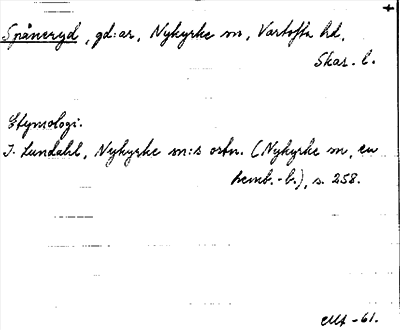 +
Spåneryd, gd:ar, Nykyrke sn, Vartofta hd,
Skar. l.
Etymologi.
I. Lundahl, Nykyrke sn:s ortn. (Nykyrke sn, en
hemb.-b.), s. 258.
-61.